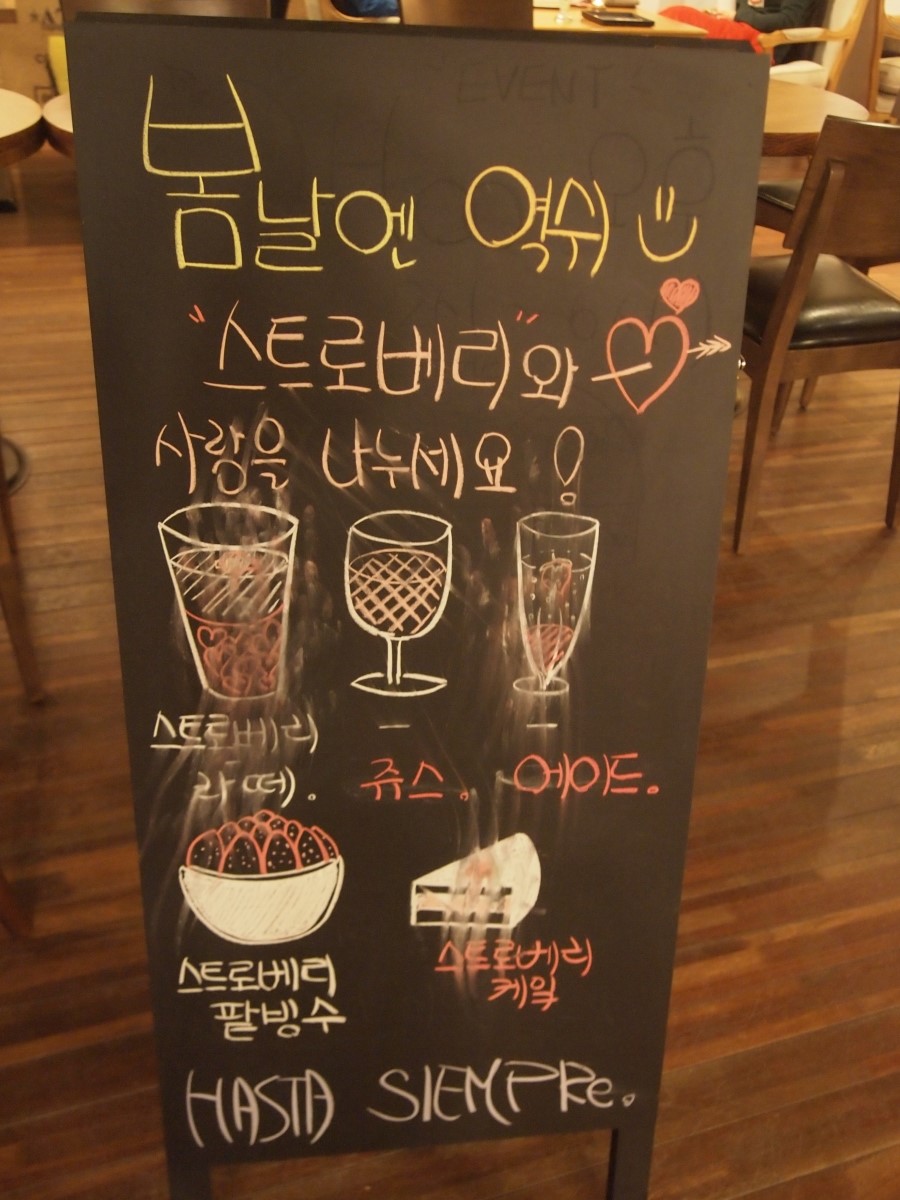 EVENT
봄날엔 역쉬
"스트로베리"와
사랑을 나누세요!
스트로베리 라떼.
- 쥬스.
- 에이드.
스트로베리
팥빙수
스트로베리
케잌
HASTA SIEMPRe.